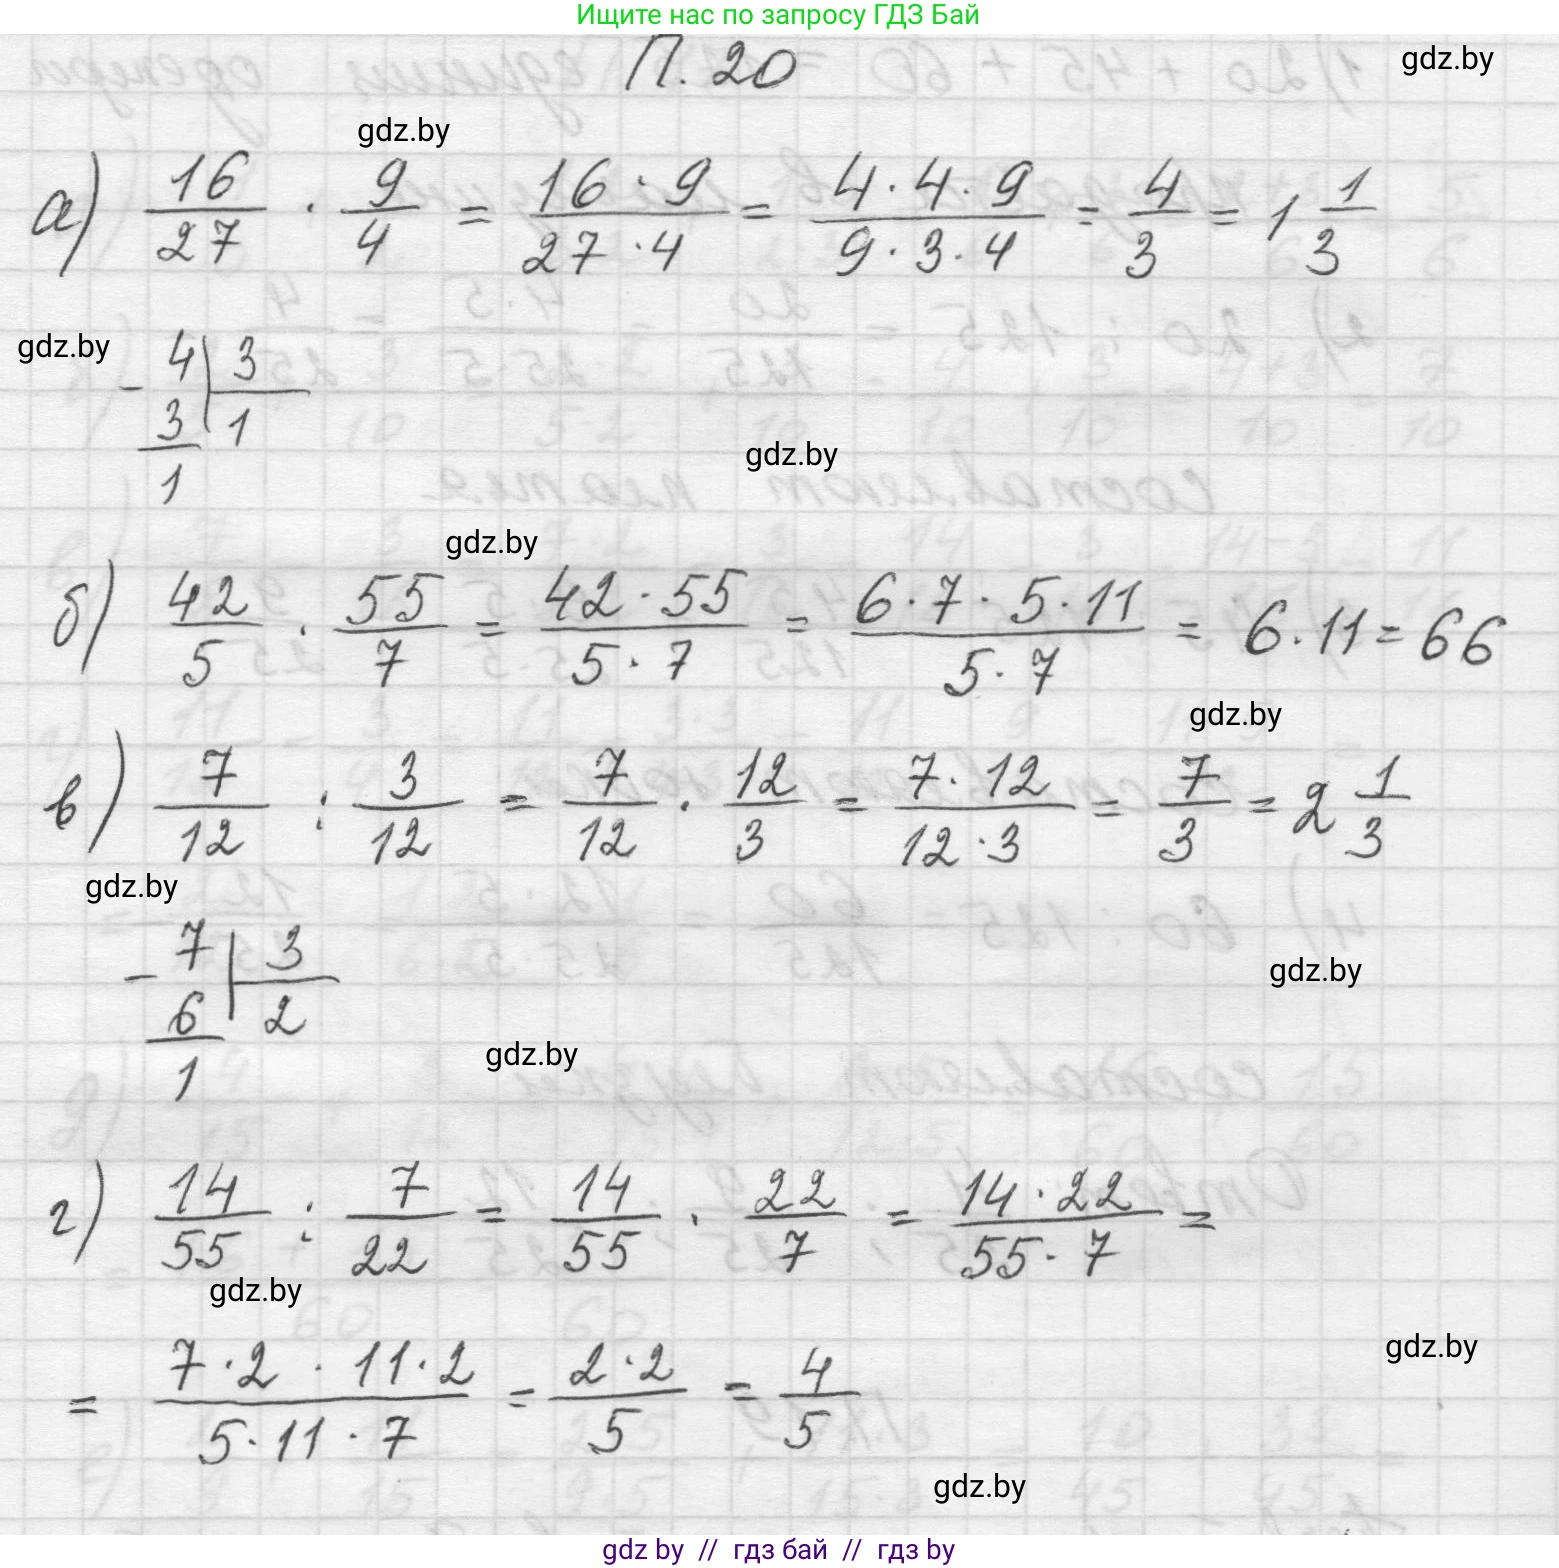 Ищите нас по запросу ГДЗ Бай
П. 20
gdz.by
gdz.by
а) 16/27 · 9/4 = 16·9/27·4 = 4·4·9/9·3·4 = 4/3 = 1 1/3
gdz.by
- 4 | 3
3 | 1
1
gdz.by
gdz.by
б) 42/5 · 55/7 = 42·55/5·7 = 6·7·5·11/5·7 = 6·11 = 66
gdz.by
в) 7/12 : 3/12 = 7/12 · 12/3 = 7·12/12·3 = 7/3 = 2 1/3
gdz.by
- 7 | 3
6 | 2
1
gdz.by
gdz.by
г) 14/55 : 7/22 = 14/55 · 22/7 = 14·22/55·7 =
gdz.by
= 7·2·11·2/5·11·7 = 2·2/5 = 4/5
gdz.by
gdz.by
gdz by // гдз бай // гдз by